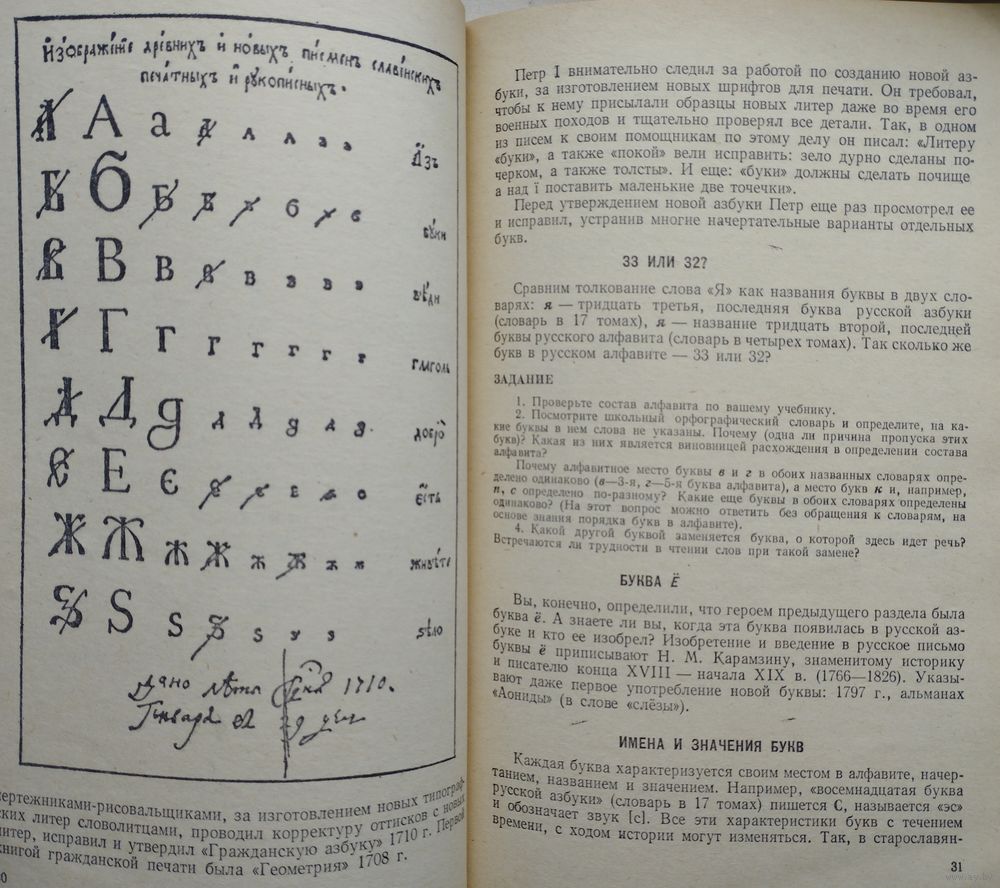 Изображенїе древнихъ и новыхъ писменъ славенскихъ
печатныхъ и рукописныхъ.
А А а а а а а а азъ
Б б Б Б б б б буки
В В В В в в в в вѣди
Г Г г г г г г г глаголь
Д Д д д д д д д добро
Е Е є е е е е е єсть
Ж Ж ж ж ж ж ж ж живѣте
Ѕ Ѕ ѕ ѕ ѕ ѕ ѕ ѕѣло
Дано лѣта 1710.
Генваря 29 дня
ертежниками-рисовальщиками, за изготовлением новых типограф-
ских литер словолитцами, проводил корректуру оттисков с новых
литер, исправил и утвердил «Гражданскую азбуку» 1710 г. Первой
книгой гражданской печати была «Геометрия» 1708 г.
0
Петр I внимательно следил за работой по созданию новой аз-
буки, за изготовлением новых шрифтов для печати. Он требовал,
чтобы к нему присылали образцы новых литер даже во время его
военных походов и тщательно проверял все детали. Так, в одном
из писем к своим помощникам по этому делу он писал: «Литеру
«буки», а также «покой» вели исправить: зело дурно сделаны по-
черком, а также толсты». И еще: «буки» должны сделать почище
а над ї поставить маленькие две точечки».
Перед утверждением новой азбуки Петр еще раз просмотрел ее
и исправил, устранив многие начертательные варианты отдельных
букв.
33 ИЛИ 32?
Сравним толкование слова «Я» как названия буквы в двух сло-
варях: я — тридцать третья, последняя буква русской азбуки
(словарь в 17 томах), я — название тридцать второй, последней
буквы русского алфавита (словарь в четырех томах). Так сколько же
букв в русском алфавите — 33 или 32?
ЗАДАНИЕ
1. Проверьте состав алфавита по вашему учебнику.
2. Посмотрите школьный орфографический словарь и определите, на ка-
кие буквы в нем слова не указаны. Почему (одна ли причина пропуска этих
букв)? Какая из них является виновницей расхождения в определении состава
алфавита?
Почему алфавитное место буквы в и г в обоих названных словарях опре-
делено одинаково (в—3-я, г—5-я буква алфавита), а место букв к и, например,
п, с определено по-разному? Какие еще буквы в обоих словарях определены
одинаково? (На этот вопрос можно ответить без обращения к словарям, на
основе знания порядка букв в алфавите).
4. Какой другой буквой заменяется буква, о которой здесь идет речь?
Встречаются ли трудности в чтении слов при такой замене?
БУКВА Ё
Вы, конечно, определили, что героем предыдущего раздела была
буква ё. А знаете ли вы, когда эта буква появилась в русской аз-
буке и кто ее изобрел? Изобретение и введение в русское письмо
буквы ё приписывают Н. М. Карамзину, знаменитому историку
и писателю конца XVIII — начала XIX в. (1766—1826). Указы-
вают даже первое употребление новой буквы: 1797 г., альманах
«Аониды» (в слове «слёзы»).
ИМЕНА И ЗНАЧЕНИЯ БУКВ
Каждая буква характеризуется своим местом в алфавите, начер-
танием, названием и значением. Например, «восемнадцатая буква
русской азбуки» (словарь в 17 томах) пишется С, называется «эс»
и обозначает звук [с]. Все эти характеристики букв с течением
времени, с ходом истории могут изменяться. Так, в старославян-
31
www.ay.by